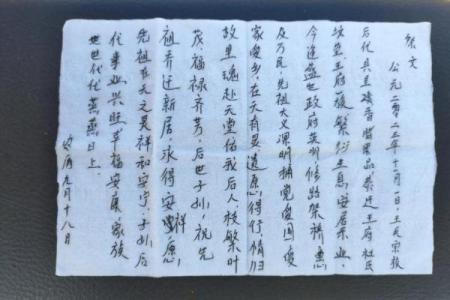 祭文
公元二零二三年十二月一日,王氏宗族
后代具 备 果品 王府 民
坟茔王府 繁衍生息,安居乐业,
今逢盛世政府英 修路架桥,惠
及万民,先祖大义深明拥党爱国爱
家爱乡,在天有灵遗愿得行,情归
故里魂赴天堂佑我后人枝繁叶
茂,福禄齐芳,后世子孙,祝先
祖乔迁新居,永得安祥愿
先祖在天之灵祥和安宁,子孙后
代事业兴旺幸福安康,家族
世世代代蒸蒸日上。
农历 十月十八日